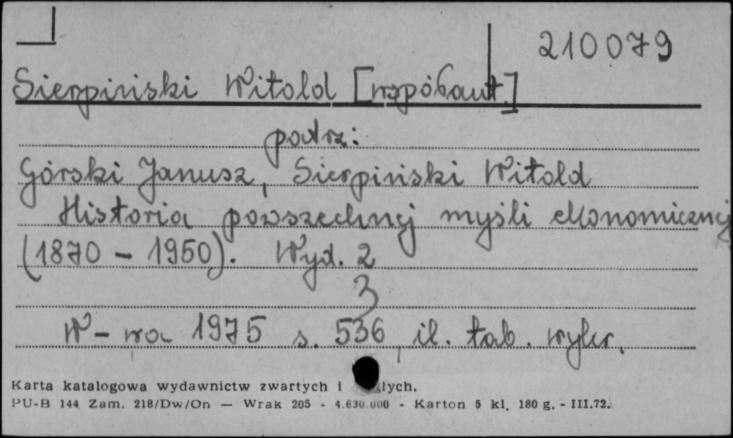 210079
Sierpiński Witold [współaut.]
patrz:
Górski Janusz, Sierpiński Witold
Historia powszechnej myśli ekonomicznej
(1870 - 1950). Wyd. 2
3
W-wa 1975 s. 536, il. tab. wykr.
Karta katalogowa wydawnictw zwartych i
PU-B 144 Zam. 218/Dw/On — Wrak 205 - 4.630.000 - Karton 5 kl. 180 g. - III.72.